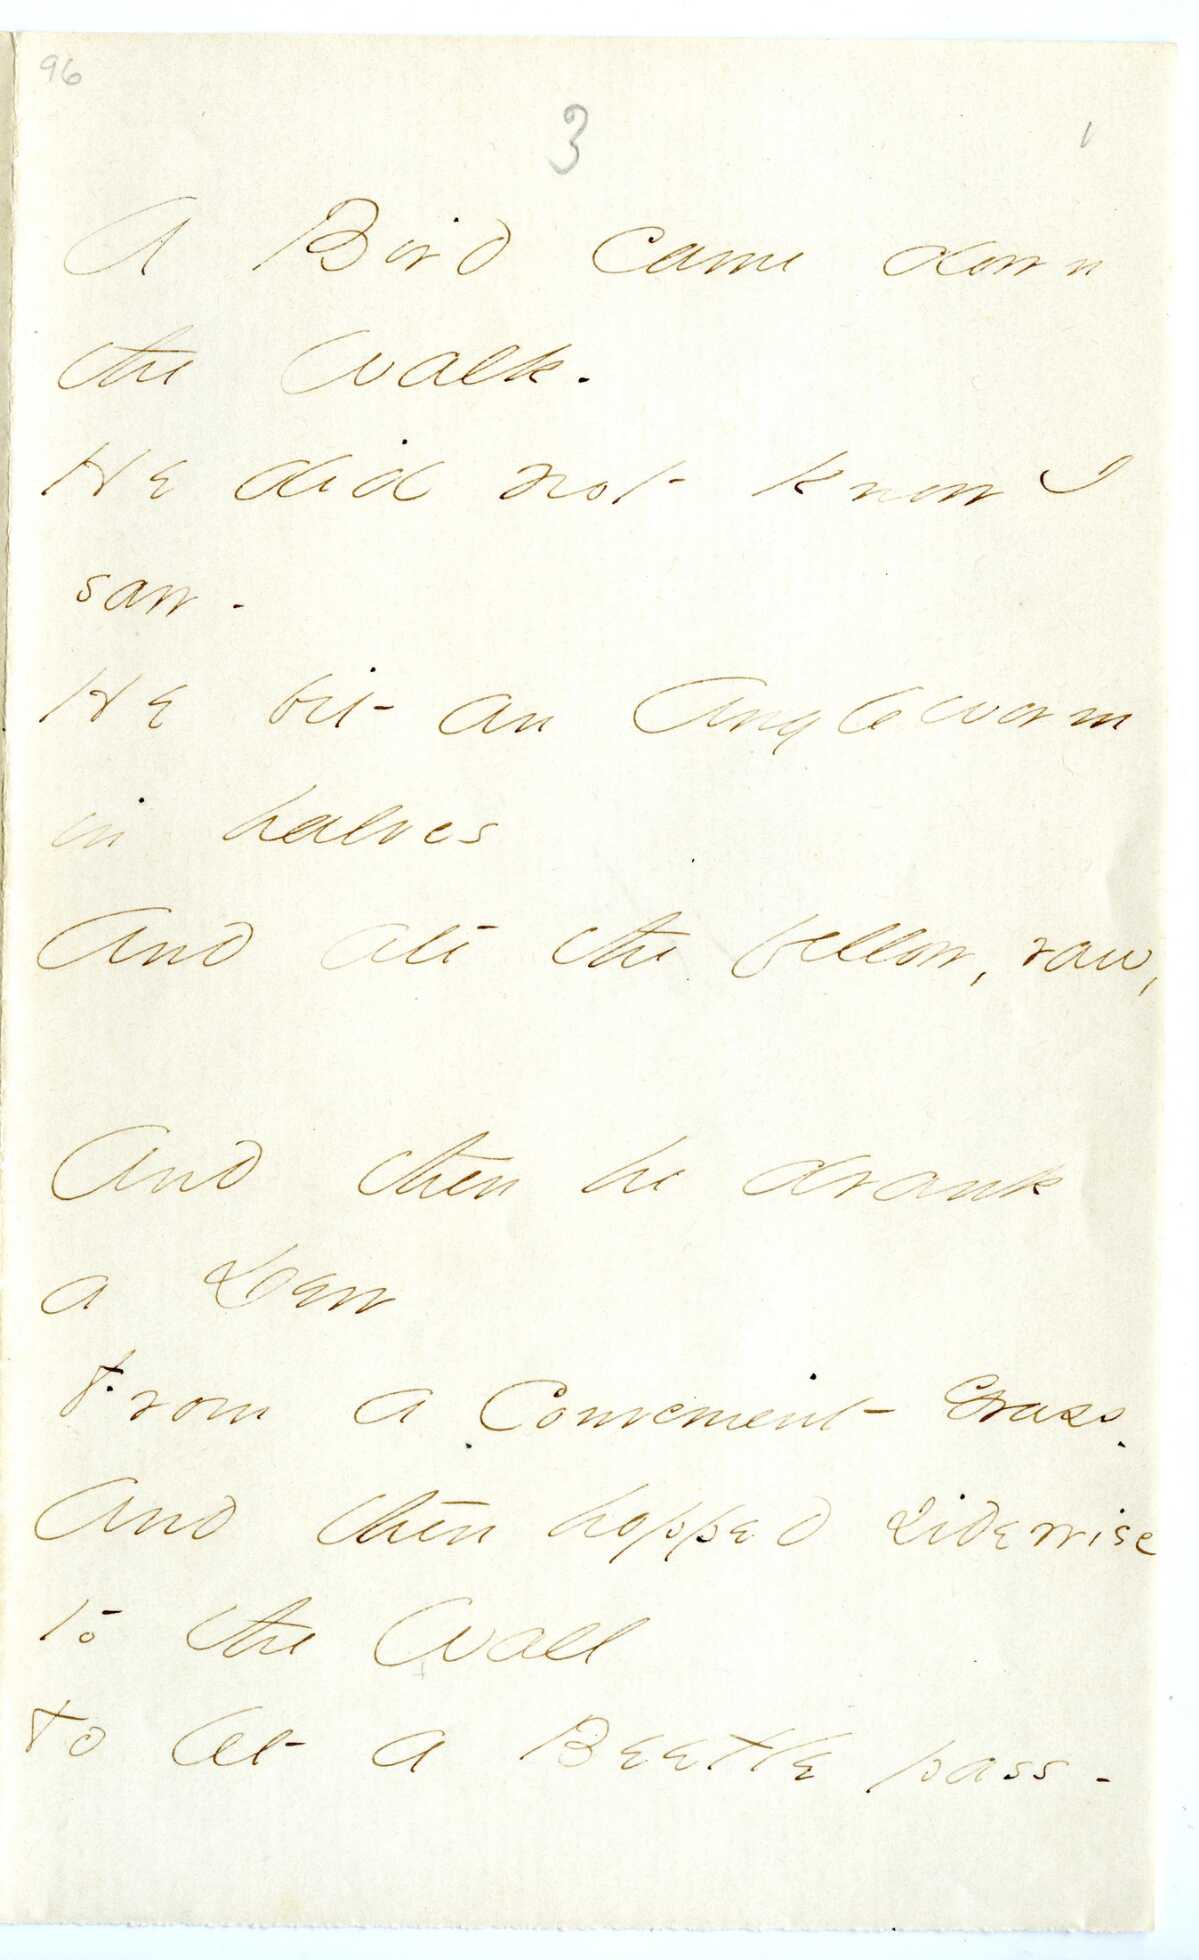 96
3
A Bird came down
the Walk.
He did not know I
saw -
He bit an Angleworm
in halves
And ate the fellow, raw,
And then he drank
a Dew
From a Convenient Grass.
And then hopped sidewise
to the Wall
To let a Beetle pass -